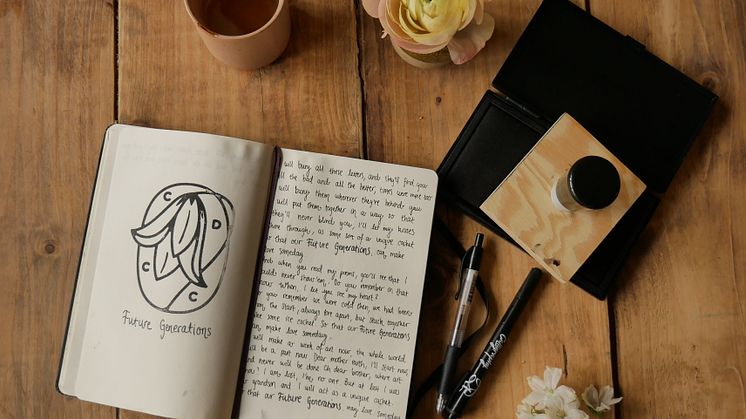 C
D
C
C
Future Generations
will bury all these layers, and they'll find you
all the bad and all the better, times were
will bury them wherever they're behind you
will put them together in a way, so that
they'll never blind you, I'll let my
through, as some sort of a unique cachet
that our Future Generations can, make
love someday.
And when you read my poems, you'll see that I
So your remember in that
I let you see my heart?
your remember we were cold then, we had been
the start, always tore apart, but stuck together
like some ice cachet. So that our Future Generations
can, make love someday.
will make ar work of art now, the whole world
be a part now. Dear mother earth, I'll start now
and never will be done Oh dear brother, where art
I am lost, I'm, no one But at last I was
grandson and I will act as a unique cachet
that our Future Generations may love Someday
Calligraphy